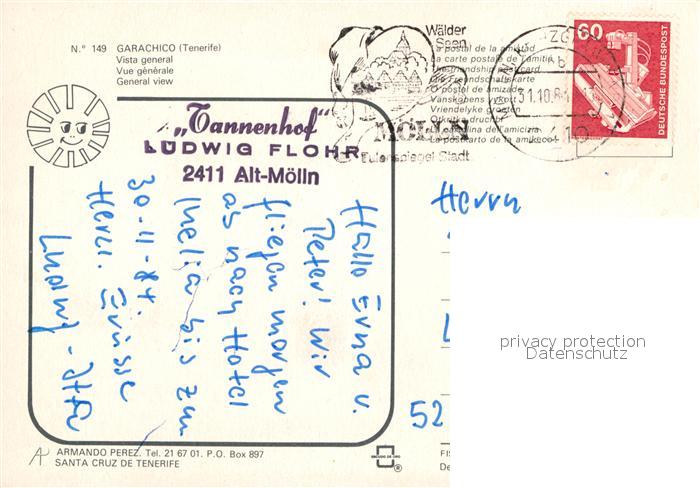 N.º 149 GARACHICO (Tenerife)
Vista general
Vue générale
General view
Wälder
Seen
La postal de la amistad
La carte postale de l'amitié
The friendship postcard
Die Freundschaftskarte
O postal de amizade
Vanskabens
Vriendelyke groeten
Otkritka druchbi
La cartolina dell'amicizia
La postcarto de la amikeco
MÖLLN
Eulenspiegel-Stadt
31.10.84
2410
60
DEUTSCHE BUNDESPOST
„Tannenhof"
LUDWIG FLOHR
2411 Alt-Mölln
Hallo Erna u.
Peter! Wir
fliegen morgen
ab nach Hotel
Melia bis zum
30.11.84.
Herzl. Grüsse
Ludwig -
Herrn
52
privacy protection
Datenschutz
ARMANDO PEREZ. Tel. 21 67 01. P.O. Box 897
SANTA CRUZ DE TENERIFE
ESCUDO DE ORO
®
FIS
De